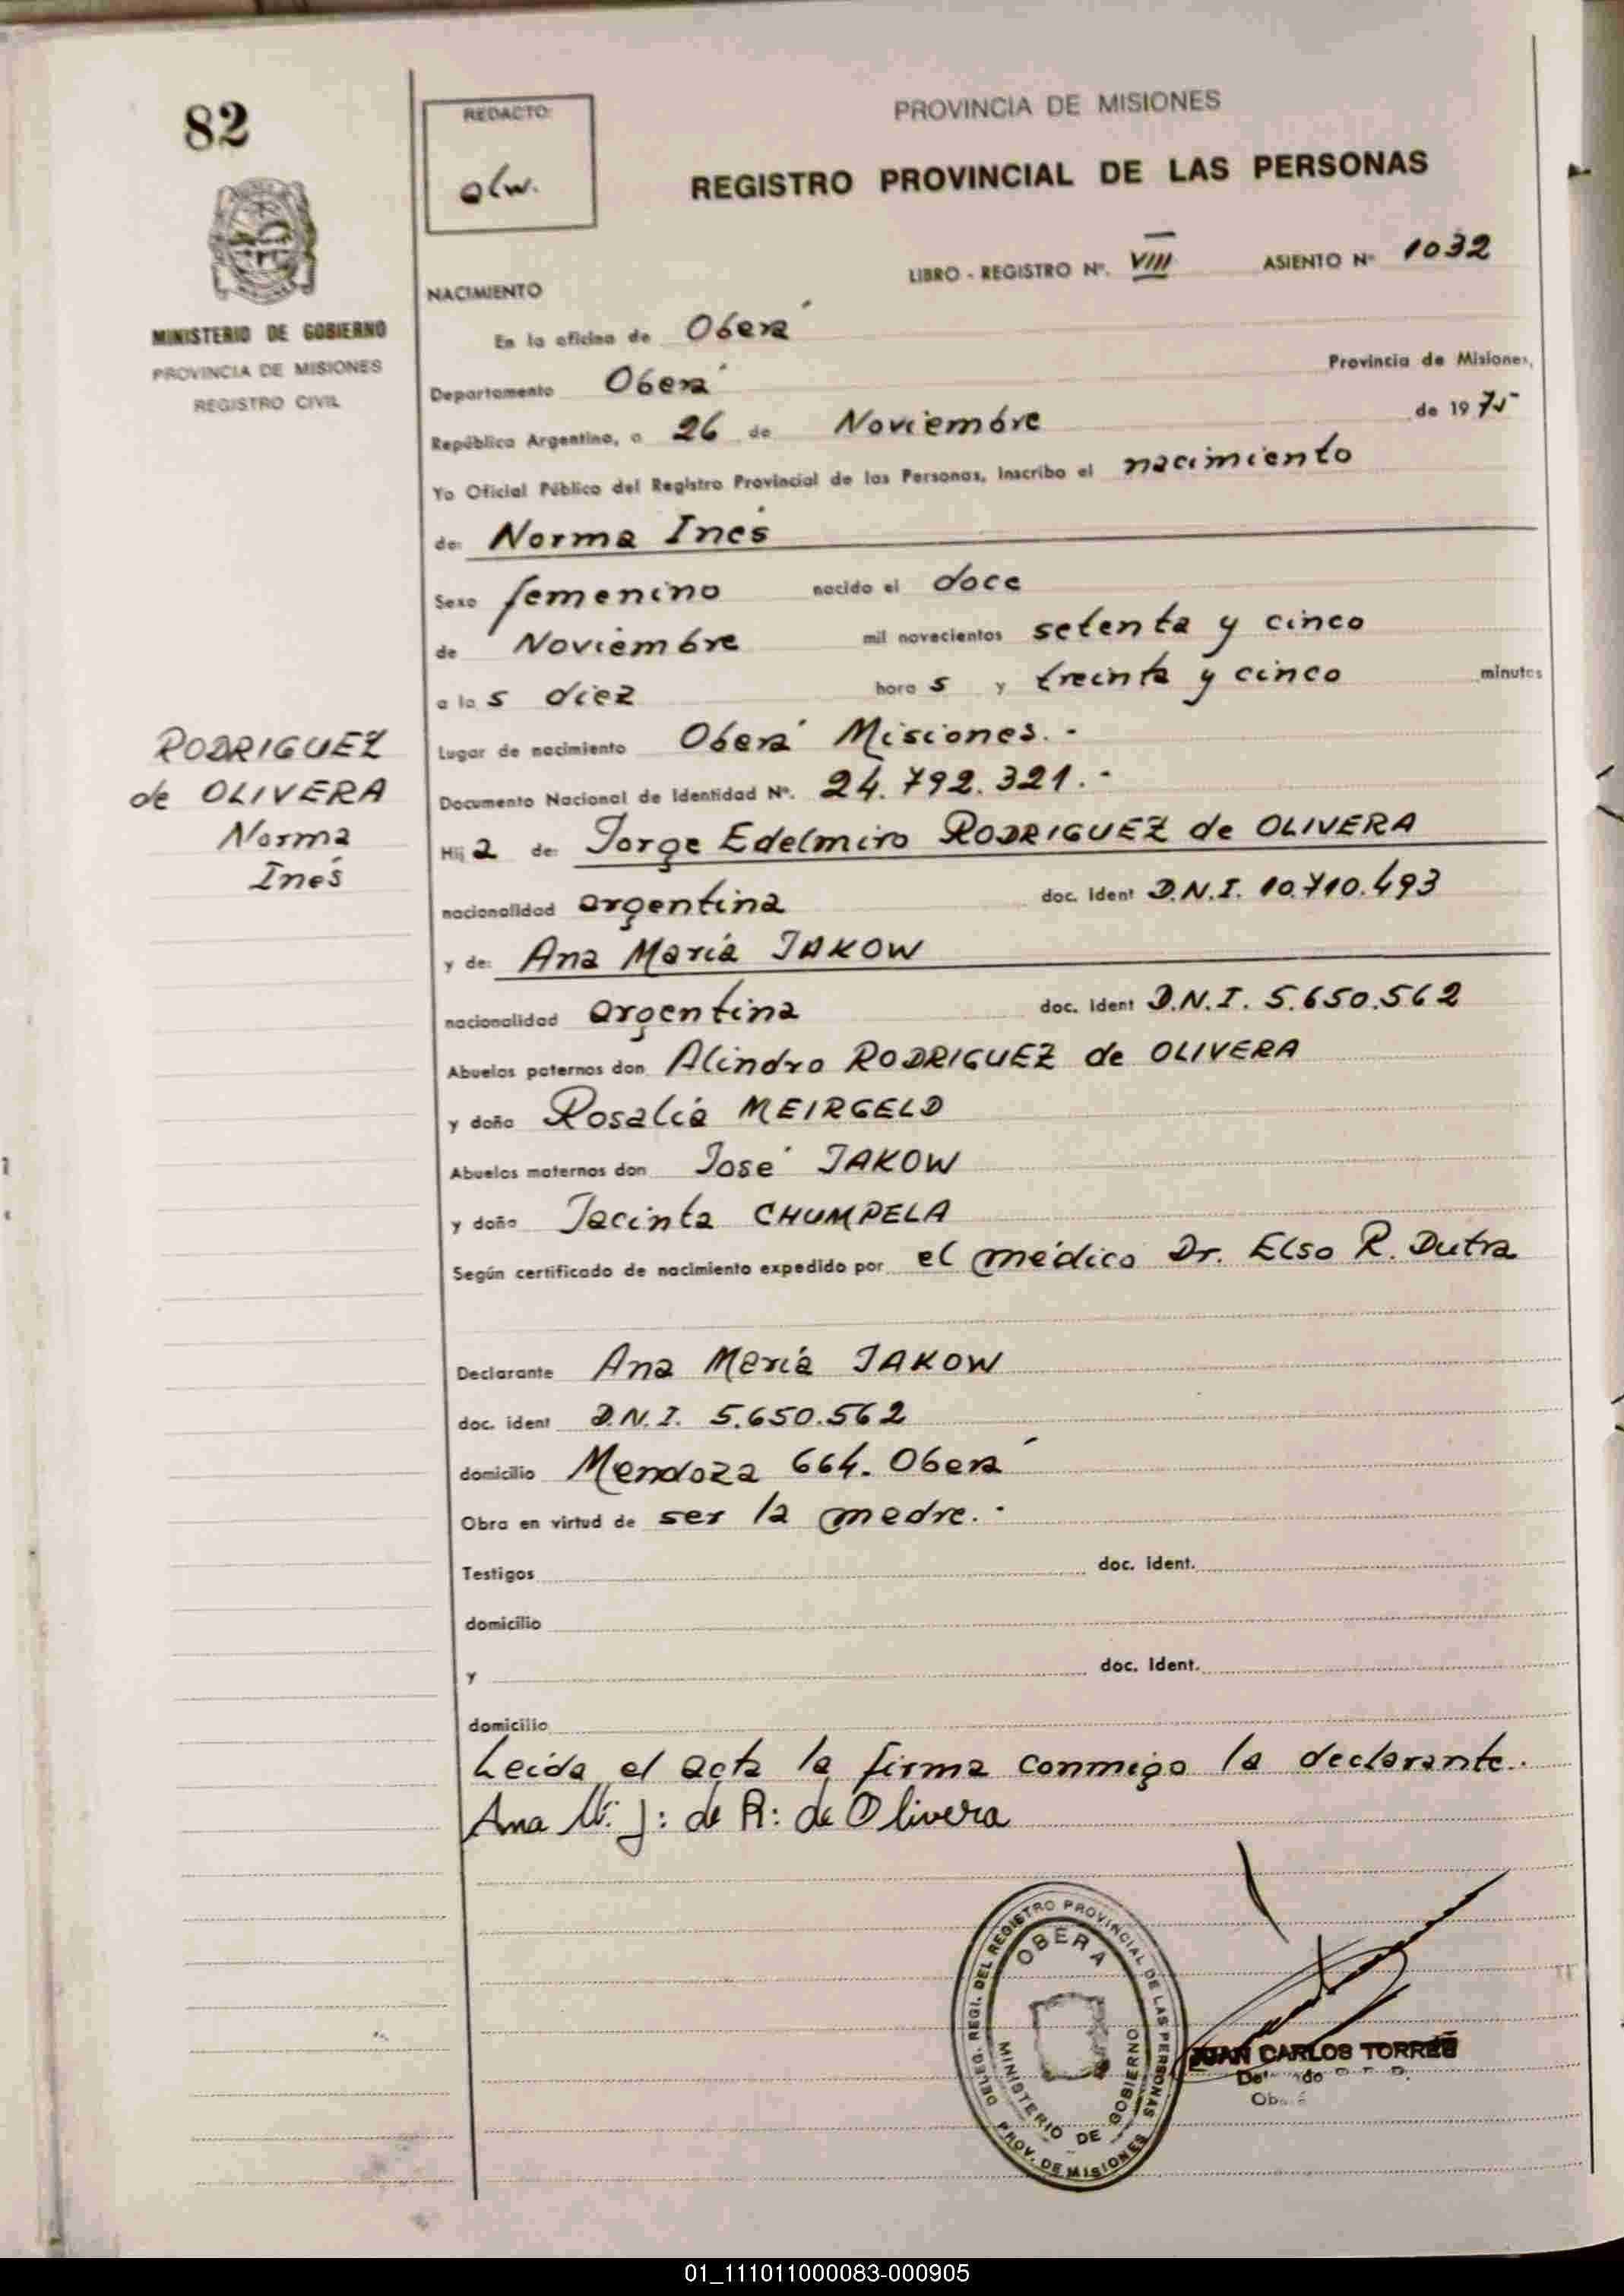 82
REDACTO:
olw.
PROVINCIA DE MISIONES
REGISTRO PROVINCIAL DE LAS PERSONAS
MINISTERIO DE GOBIERNO
PROVINCIA DE MISIONES
REGISTRO CIVIL
LIBRO - REGISTRO Nº. VIII ASIENTO Nº 1032
NACIMIENTO
En la oficina de Oberá
Provincia de Misiones,
Departamento Oberá
República Argentina, a 26 de Noviembre de 1975
Yo Oficial Público del Registro Provincial de las Personas, inscribo el nacimiento
de: Norma Inés
Sexo femenino nacido el doce
de Noviembre mil novecientos setenta y cinco
a las diez horas y treinta y cinco minutos
Lugar de nacimiento Oberá Misiones.-
Documento Nacional de Identidad Nº. 24.792.321.-
RODRIGUEZ
de OLIVERA
Norma
Inés
Hija de: Jorge Edelmiro RODRIGUEZ de OLIVERA
nacionalidad argentina doc. Ident D.N.I. 10.710.493
y de: Ana María JAKOW
nacionalidad argentina doc. Ident D.N.I. 5.650.562
Abuelos paternos don Alindro RODRIGUEZ de OLIVERA
y doña Rosalía MEIRGELD
Abuelos maternos don José JAKOW
y doña Jacinta CHUMPELA
Según certificado de nacimiento expedido por el médico Dr. Elso R. Dutra
Declarante Ana María JAKOW
doc. ident D.N.I. 5.650.562
domicilio Mendoza 664. Oberá
Obra en virtud de ser la madre.-
Testigos doc. ident.
domicilio
y doc. Ident.
domicilio
Leída el acta la firma conmigo la declarante.
Ana M. J: de R: de Olivera
DELEG. REGI. DEL REGISTRO PROVINCIAL DE LAS PERSONAS
OBERA
MINISTERIO DE GOBIERNO
PROV. DE MISIONES
JUAN CARLOS TORRES
01_111011000083-000905